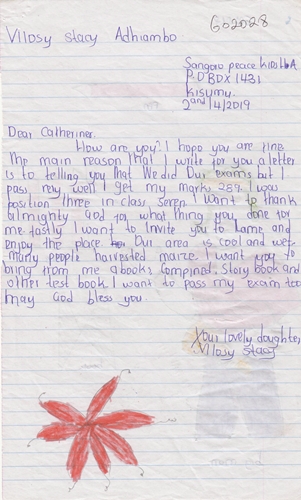 G02028
Vllosy stacy Adhiambo
Sangoro peace KIRO
P.O BOX 1431
Kisumu.
2and/4/2019
Dear Catheriner.
How are you? I hope you are fine
The main reason that I write for you a letter
is to telling you that We did Our exams but I
pass very well I get my marks 289. I was
position three in class seren I want to thank
almighty God for what thing you done for
me fastly I want to Invite you to home and
enjoy the place Our area is cool and wet
many people harvested maize. I want you to
bring from me a books Compined. Story book and
other test book I want to pass my exam too
may God bless you.
Your lovely daughter,
Vllosy stacy